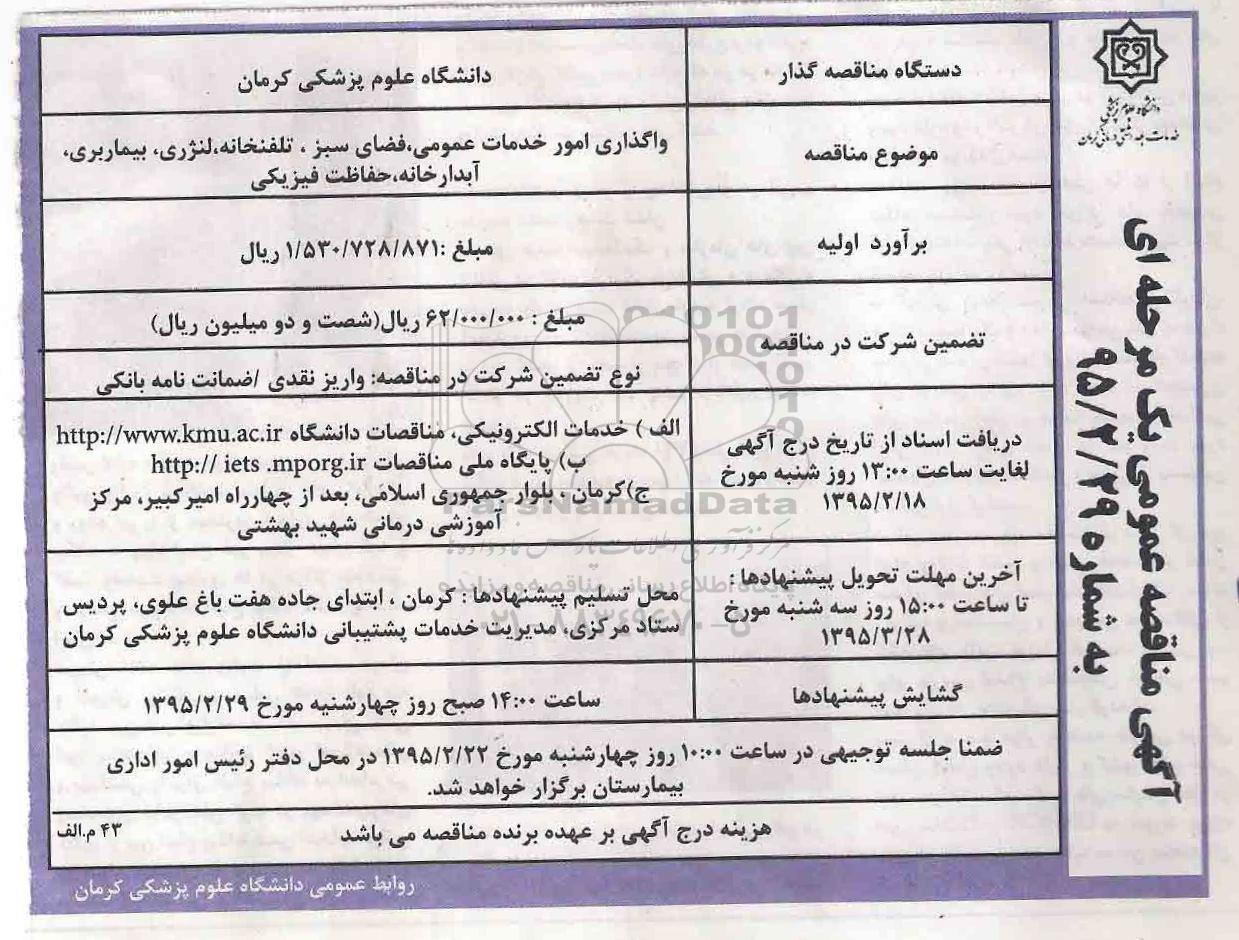 دانشگاه علوم پزشکی
خدمات بهداشتی درمانی کرمان
آگهی مناقصه عمومی یک مرحله ای
به شماره ۹۵/۲/۲۹
دستگاه مناقصه گذار
دانشگاه علوم پزشکی کرمان
موضوع مناقصه
واگذاری امور خدمات عمومی،فضای سبز ، تلفنخانه،لنژری، بیماربری،
آبدارخانه،حفاظت فیزیکی
برآورد اولیه
مبلغ :۱/۵۳۰/۷۲۸/۸۷۱ ریال
تضمین شرکت در مناقصه
مبلغ : ۶۲/۰۰۰/۰۰۰ ریال(شصت و دو میلیون ریال)
نوع تضمین شرکت در مناقصه: واریز نقدی /ضمانت نامه بانکی
دریافت اسناد از تاریخ درج آگهی
لغایت ساعت ۱۳:۰۰ روز شنبه مورخ
۱۳۹۵/۲/۱۸
الف ) خدمات الکترونیکی، مناقصات دانشگاه http://www.kmu.ac.ir
ب) پایگاه ملی مناقصات http:// iets .mporg.ir
ج)کرمان ، بلوار جمهوری اسلامی، بعد از چهارراه امیرکبیر، مرکز
آموزشی درمانی شهید بهشتی
آخرین مهلت تحویل پیشنهادها :
تا ساعت ۱۵:۰۰ روز سه شنبه مورخ
۱۳۹۵/۲/۲۸
محل تسلیم پیشنهادها : کرمان ، ابتدای جاده هفت باغ علوی، پردیس
ستاد مرکزی، مدیریت خدمات پشتیبانی دانشگاه علوم پزشکی کرمان
گشایش پیشنهادها
ساعت ۱۴:۰۰ صبح روز چهارشنبه مورخ ۱۳۹۵/۲/۲۹
ضمنا جلسه توجیهی در ساعت ۱۰:۰۰ روز چهارشنبه مورخ ۱۳۹۵/۲/۲۲ در محل دفتر رئیس امور اداری
بیمارستان برگزار خواهد شد.
هزینه درج آگهی بر عهده برنده مناقصه می باشد
۴۳ م.الف
روابط عمومی دانشگاه علوم پزشکی کرمان
ParsNamadData